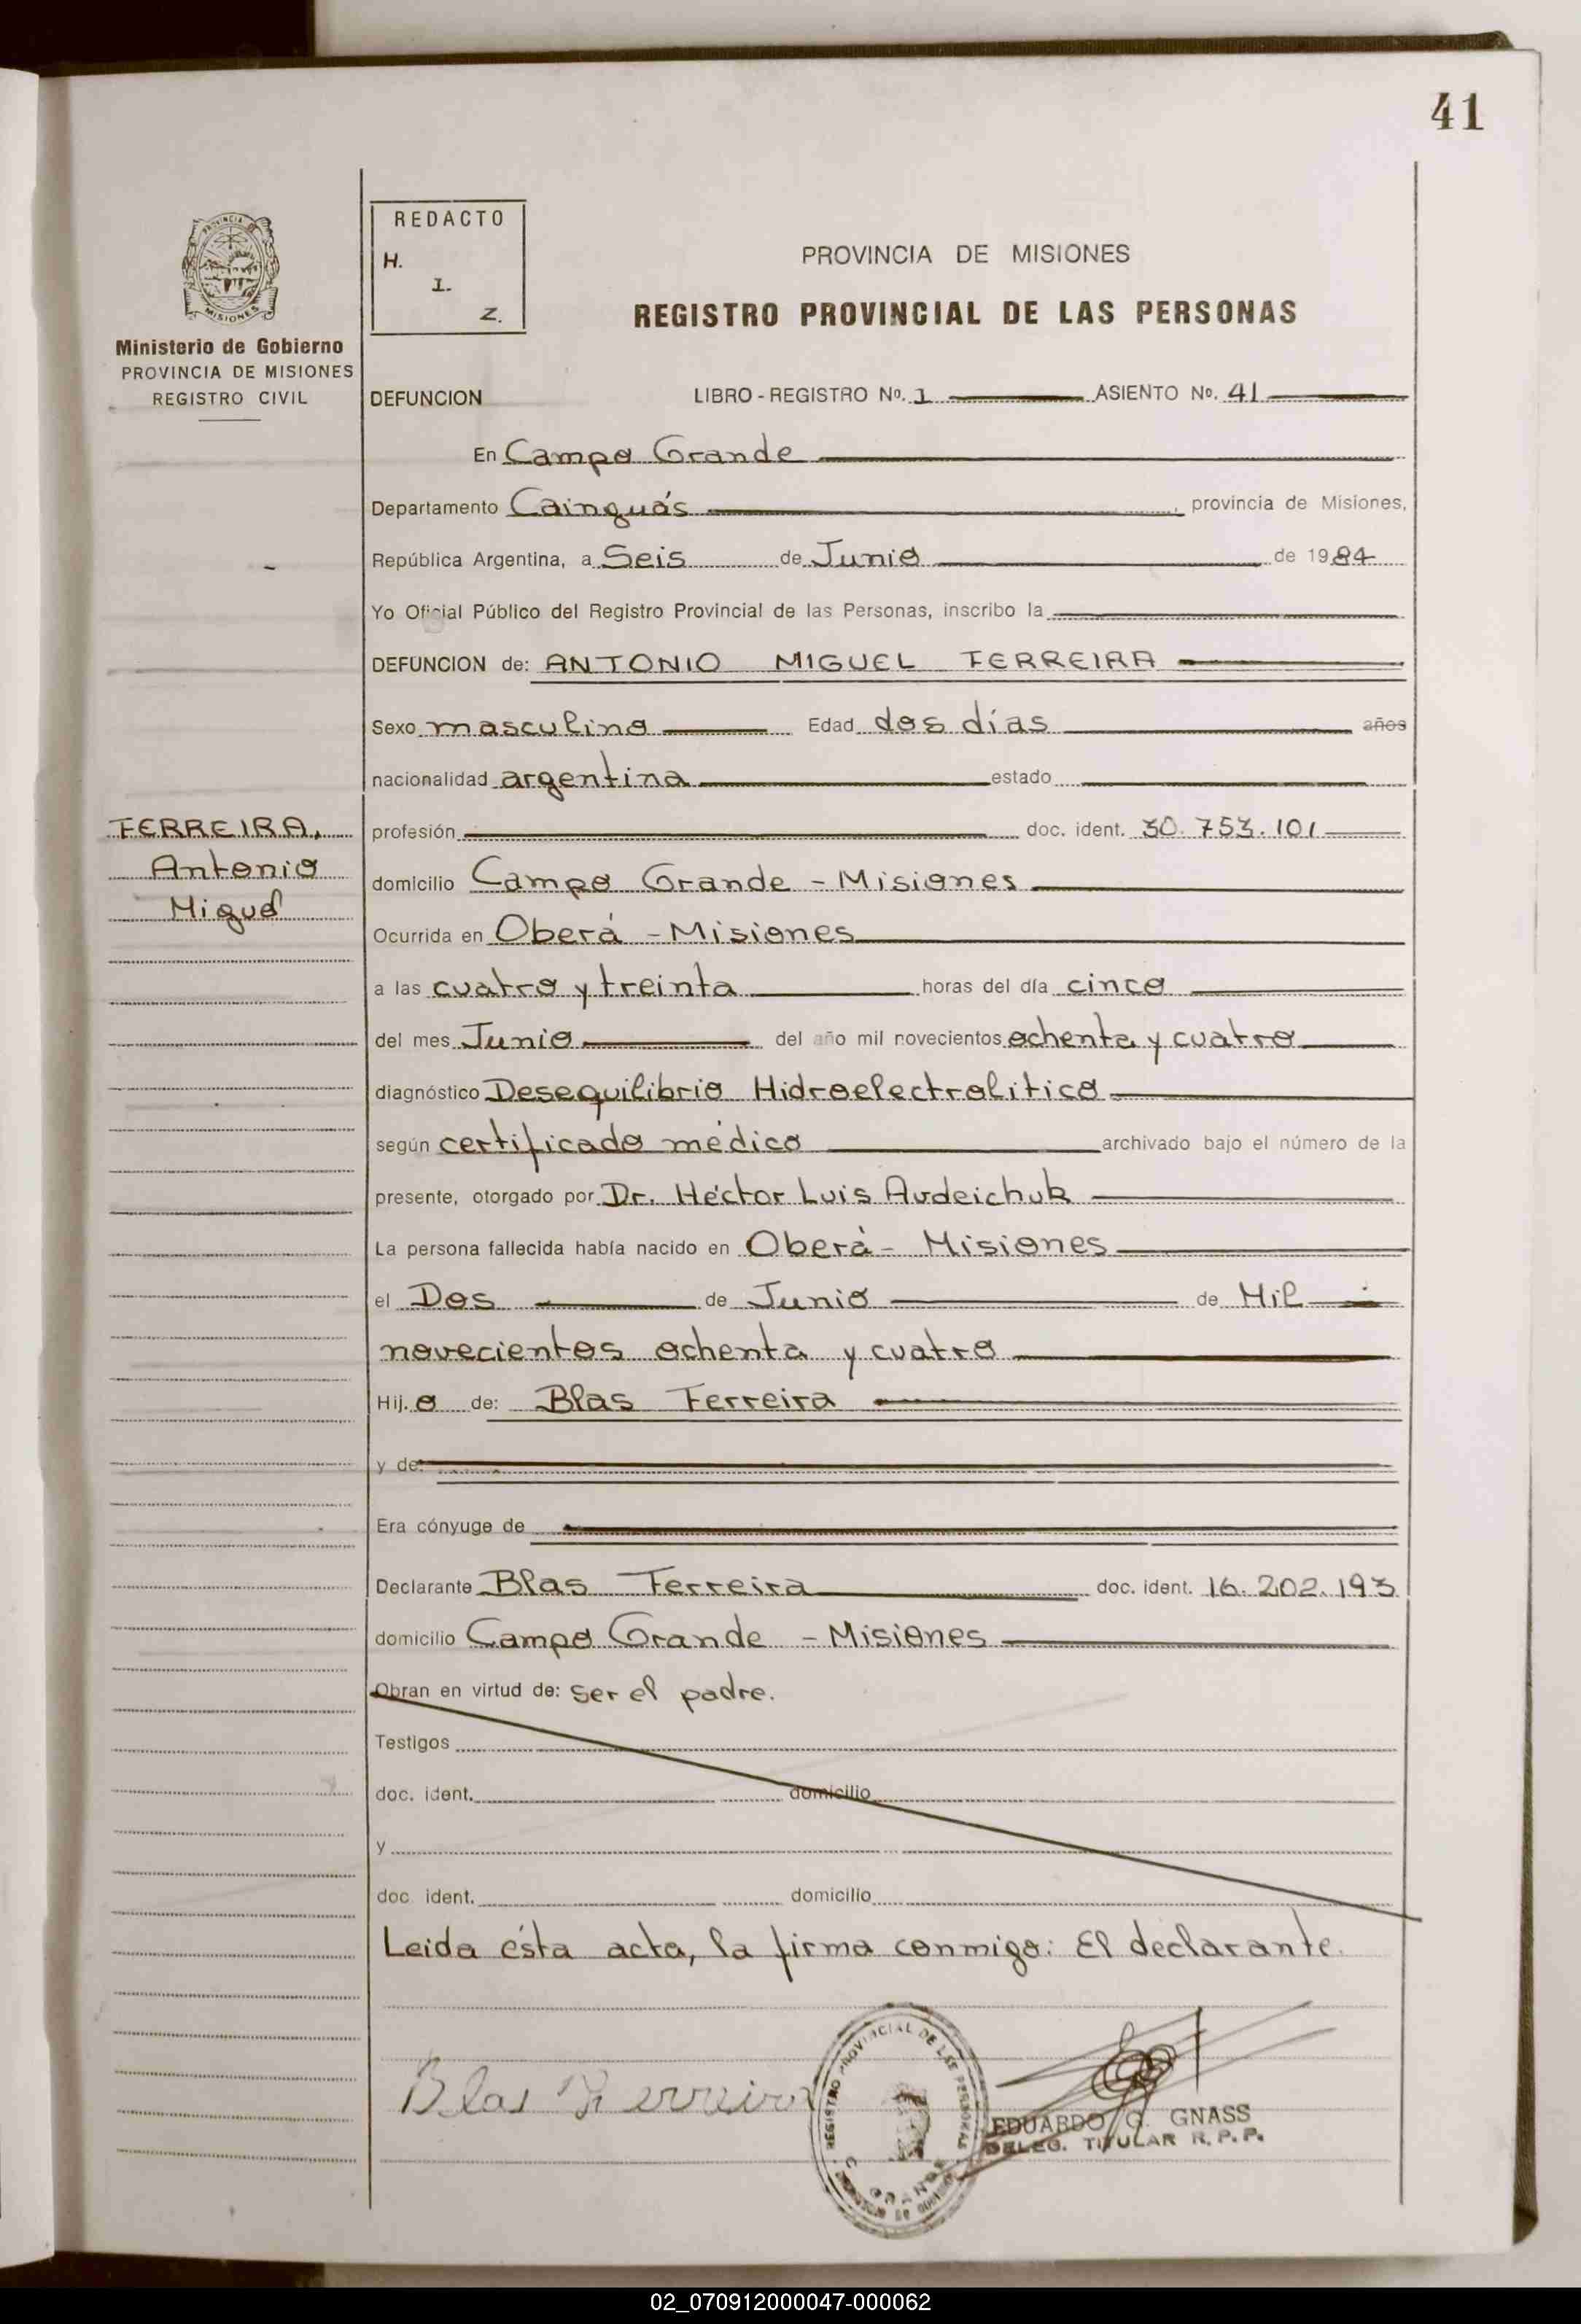 41
PROVINCIA DE
MISIONES
Ministerio de Gobierno
PROVINCIA DE MISIONES
REGISTRO CIVIL
REDACTO
H.
I.
Z.
PROVINCIA DE MISIONES
REGISTRO PROVINCIAL DE LAS PERSONAS
DEFUNCION LIBRO - REGISTRO Nº. 1 ASIENTO Nº. 41
En Campo Grande
Departamento Cainguás, provincia de Misiones,
República Argentina, a Seis de Junio de 1984
Yo Oficial Público del Registro Provincial de las Personas, inscribo la
DEFUNCION de: ANTONIO MIGUEL FERREIRA
Sexo masculino Edad dos días años
nacionalidad argentina estado
FERREIRA,
Antonio
Miguel
profesión doc. ident. 30.753.101
domicilio Campo Grande - Misiones
Ocurrida en Oberá - Misiones
a las cuatro y treinta horas del día cinco
del mes Junio del año mil novecientos ochenta y cuatro
diagnóstico Desequilibrio Hidroelectrolitico
según certificado médico archivado bajo el número de la
presente, otorgado por Dr. Héctor Luis Audeichuk
La persona fallecida había nacido en Oberá - Misiones
el Dos de Junio de Mil
novecientos ochenta y cuatro
Hij.o de: Blas Ferreira
y de:
Era cónyuge de
Declarante Blas Ferreira doc. ident. 16.202.193
domicilio Campo Grande - Misiones
Obran en virtud de: ser el padre.
Testigos
doc. ident. domicilio
y
doc. ident. domicilio
Leida ésta acta, la firma conmigo: El declarante.
Blas Ferreira
REGISTRO PROVINCIAL DE LAS PERSONAS
EDUARDO G. GNASS
DELEG. TITULAR R.P.P.
02_070912000047-000062